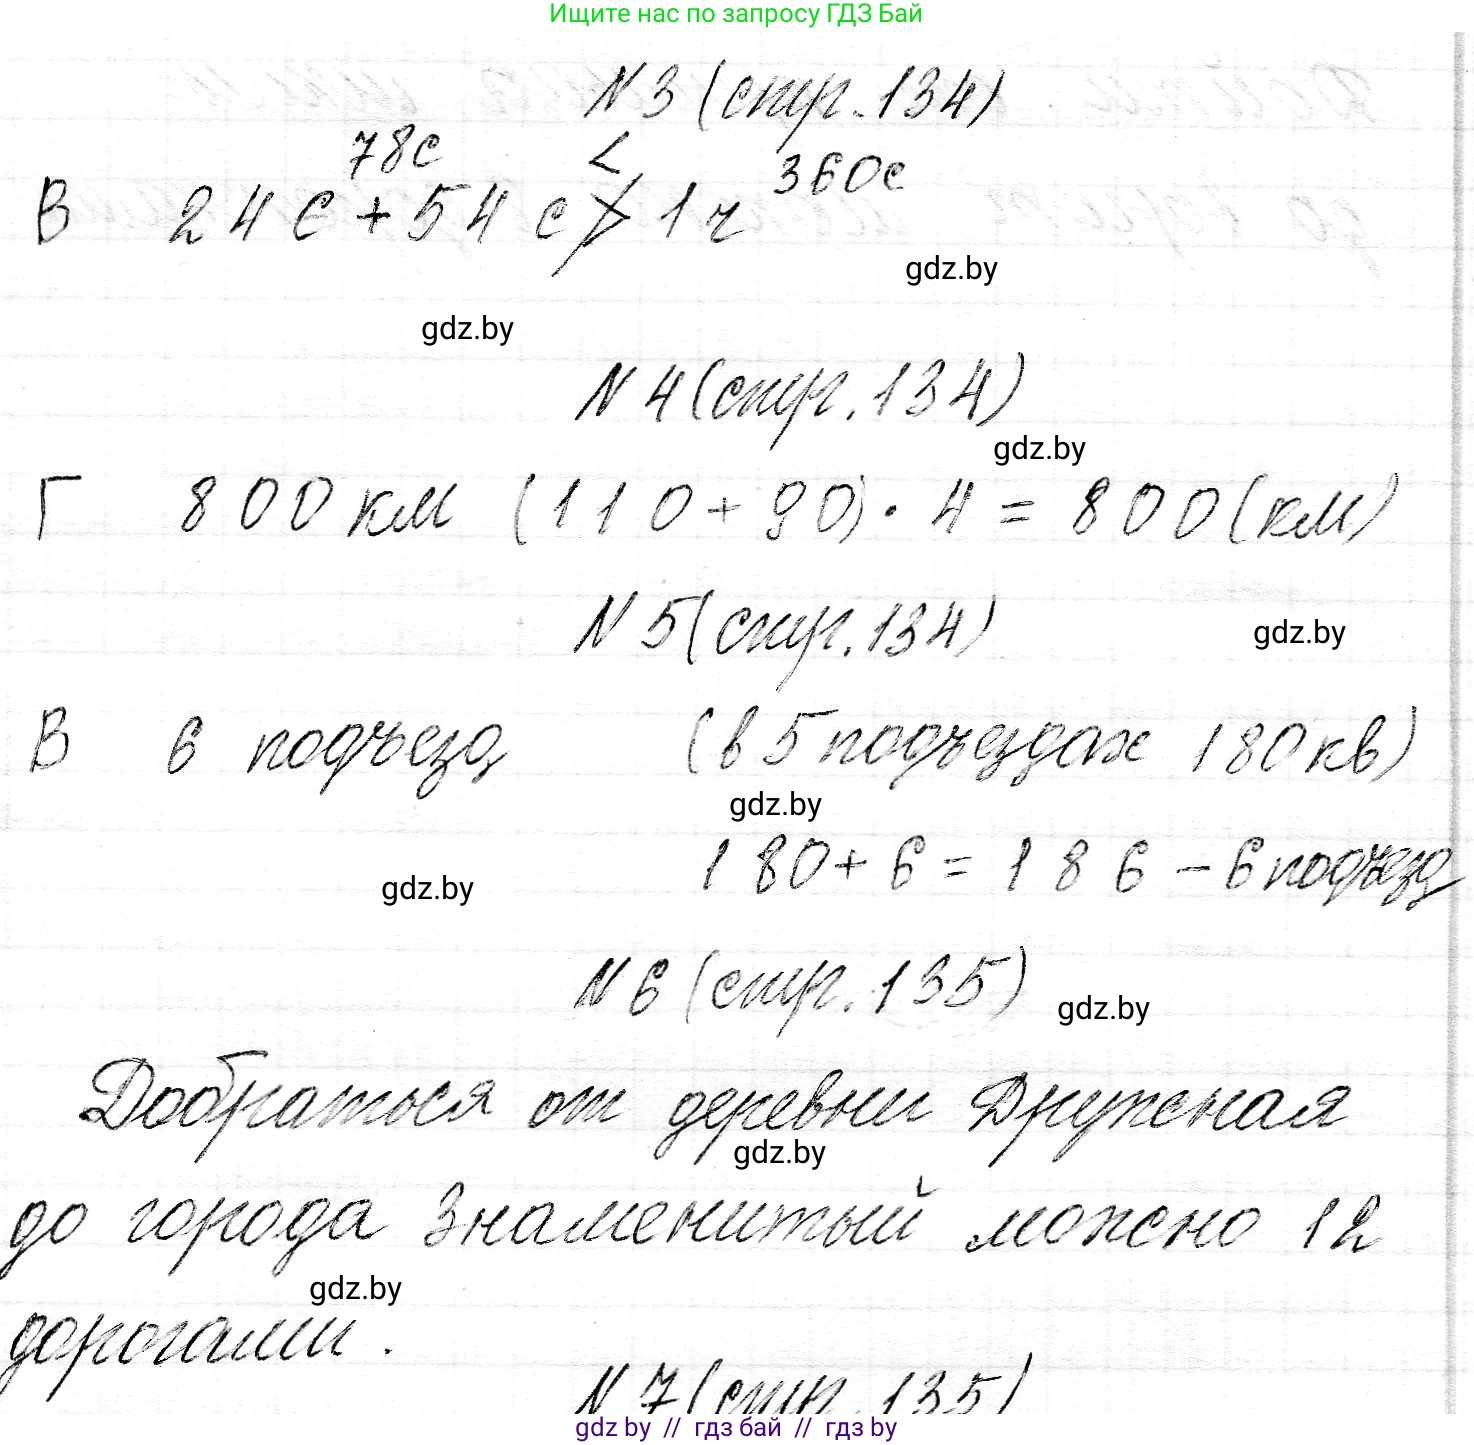 Ищите нас по запросу ГДЗ Бай
N 3 (стр. 134)
78с < 360с
В 24 с + 54 с > 1 ч
gdz.by
gdz.by
N 4 (стр. 134)
gdz.by
Г 800 км (110 + 90) · 4 = 800 (км)
N 5 (стр. 134)
gdz.by
В 6 подъезд (в 5 подъездах 180 кв)
gdz.by
180 + 6 = 186 - 6 подъезд
gdz.by
N 6 (стр. 135)
gdz.by
Добраться от деревни Дружная
gdz.by
до города Знаменитый можно 12
gdz.by
дорогами.
N 7 (стр. 135)
gdz by // гдз бай // гдз by